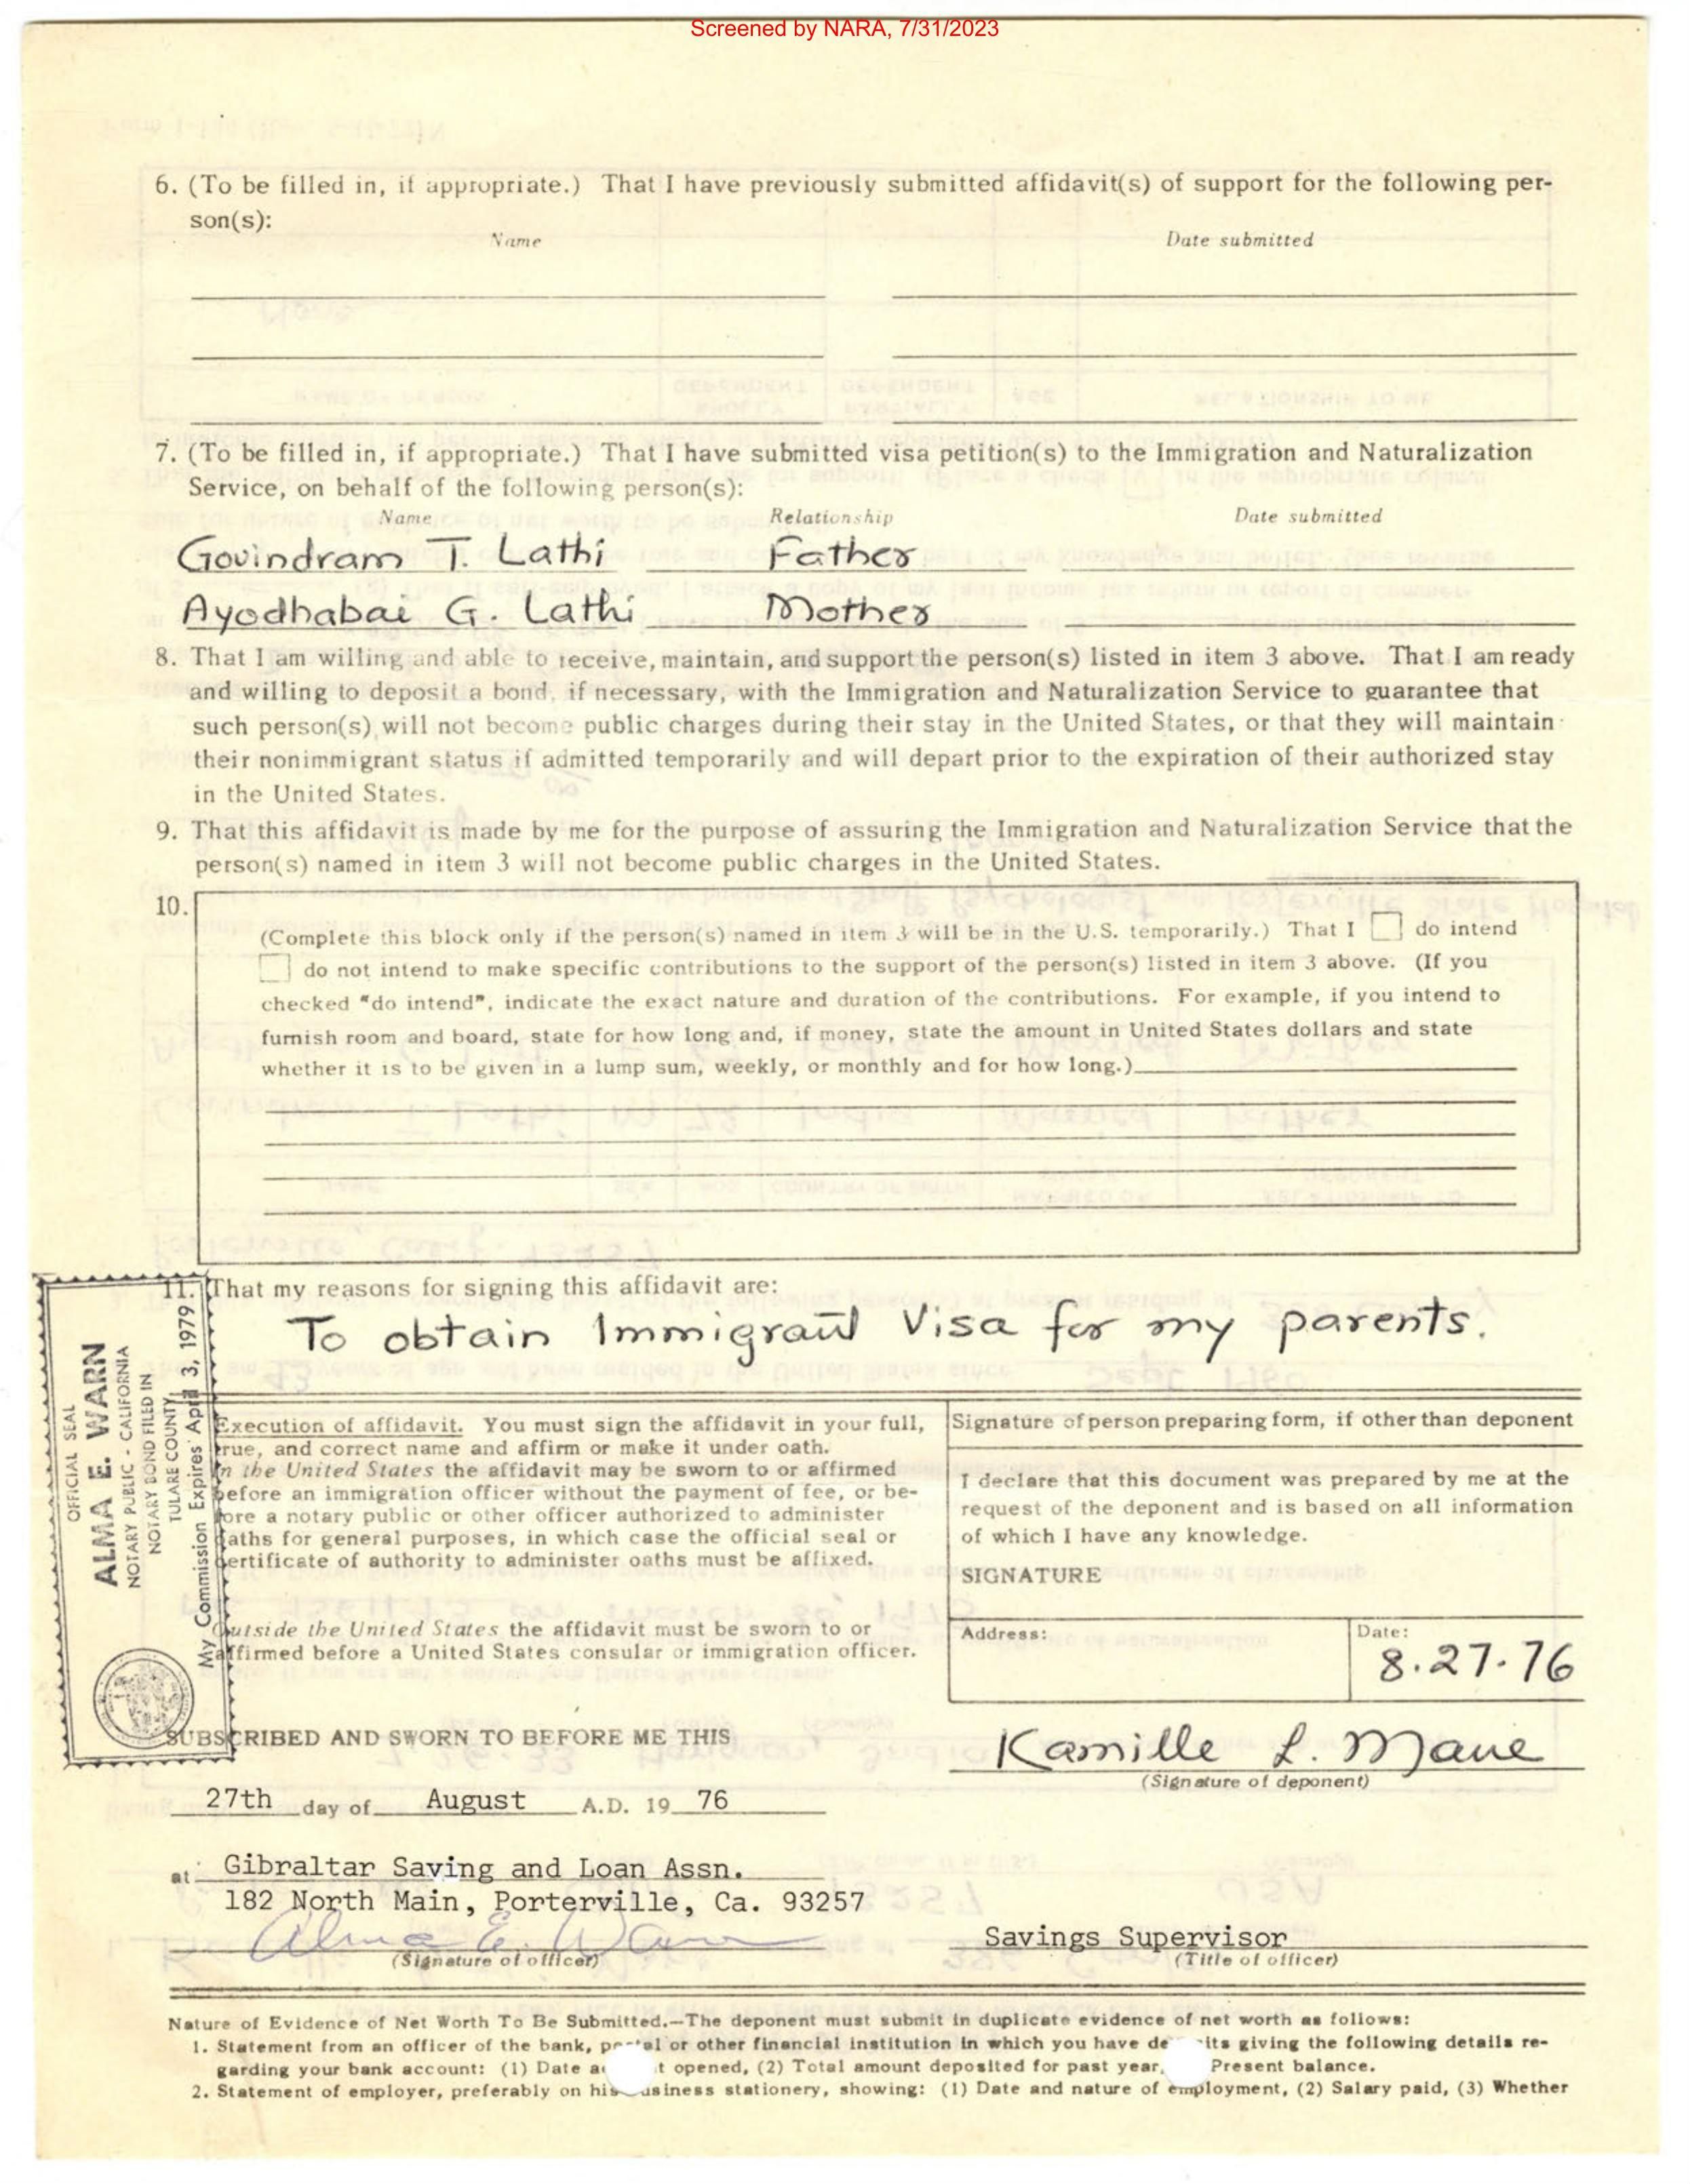 Screened by NARA, 7/31/2023
6. (To be filled in, if appropriate.) That I have previously submitted affidavit(s) of support for the following per-
son(s):
Name Date submitted
7. (To be filled in, if appropriate.) That I have submitted visa petition(s) to the Immigration and Naturalization
Service, on behalf of the following person(s):
Name Relationship Date submitted
Govindram T. Lathi Father
Ayodhabai G. Lathi Mother
8. That I am willing and able to receive, maintain, and support the person(s) listed in item 3 above. That I am ready
and willing to deposit a bond, if necessary, with the Immigration and Naturalization Service to guarantee that
such person(s) will not become public charges during their stay in the United States, or that they will maintain
their nonimmigrant status if admitted temporarily and will depart prior to the expiration of their authorized stay
in the United States.
9. That this affidavit is made by me for the purpose of assuring the Immigration and Naturalization Service that the
person(s) named in item 3 will not become public charges in the United States.
10.
(Complete this block only if the person(s) named in item 3 will be in the U.S. temporarily.) That I do intend
do not intend to make specific contributions to the support of the person(s) listed in item 3 above. (If you
checked "do intend", indicate the exact nature and duration of the contributions. For example, if you intend to
furnish room and board, state for how long and, if money, state the amount in United States dollars and state
whether it is to be given in a lump sum, weekly, or monthly and for how long.)
11. That my reasons for signing this affidavit are:
To obtain Immigrant Visa for my parents.
OFFICIAL SEAL
ALMA E. WARN
NOTARY PUBLIC - CALIFORNIA
NOTARY BOND FILED IN
TULARE COUNTY
My Commission Expires April 3, 1979
Execution of affidavit. You must sign the affidavit in your full,
true, and correct name and affirm or make it under oath.
In the United States the affidavit may be sworn to or affirmed
before an immigration officer without the payment of fee, or be-
fore a notary public or other officer authorized to administer
oaths for general purposes, in which case the official seal or
certificate of authority to administer oaths must be affixed.
Outside the United States the affidavit must be sworn to or
affirmed before a United States consular or immigration officer.
Signature of person preparing form, if other than deponent
I declare that this document was prepared by me at the
request of the deponent and is based on all information
of which I have any knowledge.
SIGNATURE
Address: Date:
8.27.76
SUBSCRIBED AND SWORN TO BEFORE ME THIS
Kamille L. Mane
(Signature of deponent)
27th day of August A.D. 19 76
at Gibraltar Saving and Loan Assn.
182 North Main, Porterville, Ca. 93257
Alma E. Warn
(Signature of officer)
Savings Supervisor
(Title of officer)
Nature of Evidence of Net Worth To Be Submitted.—The deponent must submit in duplicate evidence of net worth as follows:
1. Statement from an officer of the bank, or other financial institution in which you have giving the following details re-
garding your bank account: (1) Date opened, (2) Total amount deposited for past year, Present balance.
2. Statement of employer, preferably on his business stationery, showing: (1) Date and nature of employment, (2) Salary paid, (3) Whether